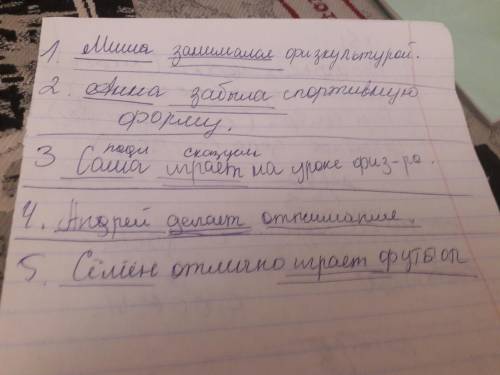 1. Миша занимался физкультурой.
2. Анна забыла спортивную
форму.
подл сказуем
3 Саша играет на уроке физ-ра.
4. Андрей делает отжимание.
5. Семён отлично играет футбол